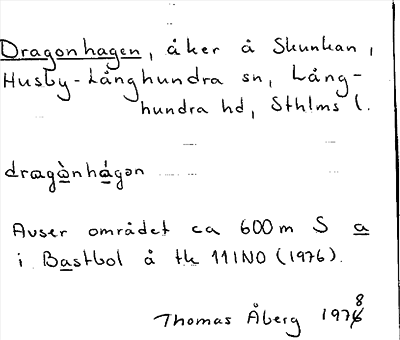 Dragonhagen, åker å Skunkan,
Husby-Långhundra sn, Lång-
hundra hd, Sthlms l.
dragònhágən
Avser området ca 600 m S a
i Bastbol å tk 11INO (1976).
Thomas Åberg 1978